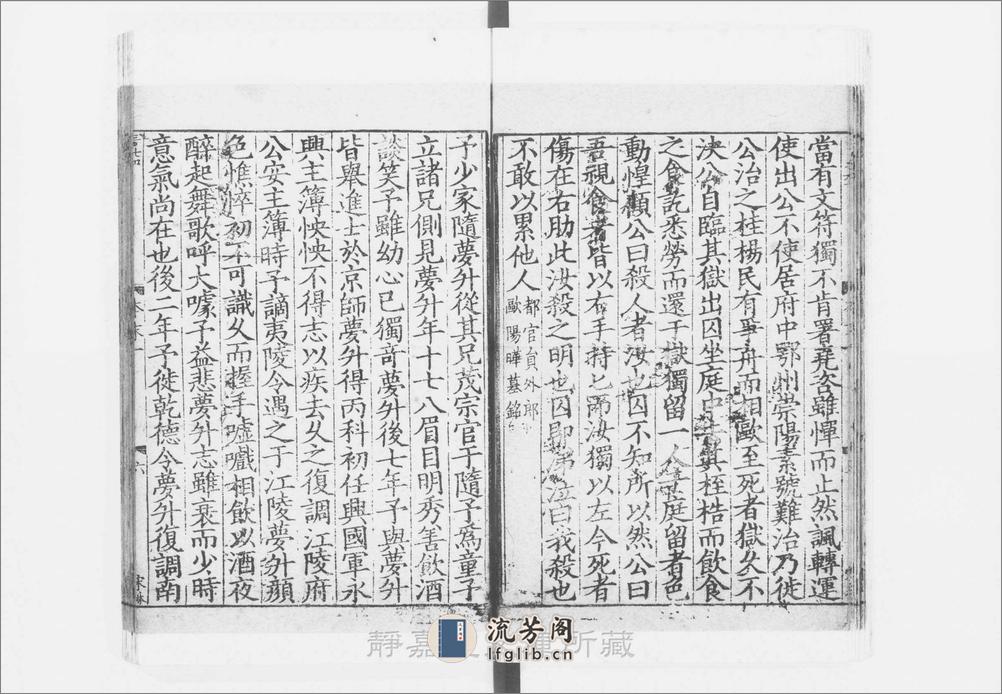 當有文符獨不肯署堯咨雖憚而止然諷轉運
使出公不使居府中鄂州崇陽素號難治乃徙
公治之桂楊民有爭舟而相毆至死者獄久不
決公自臨其獄出囚坐庭中去其桎梏而飲食
之食訖悉勞而還于獄獨留一人于庭留者色
動惶顧公曰殺人者汝也囚不知所以然公曰
吾視食者皆以右手持匕而汝獨以左今死者
傷在右肋此汝殺之明也囚即涕泣曰我殺也
不敢以累他人
都官員外郎
歐陽曄墓銘
予少家隨夢升從其兄茂宗官于隨予爲童子
立諸兄側見夢升年十七八眉目明秀善飲酒
談笑予雖幼心已獨竒夢升後七年予與夢升
皆舉進士於京師夢升得丙科初任興國軍永
興主簿怏怏不得志以疾去久之復調江陵府
公安主簿時予謫夷陵令遇之于江陵夢升顔
色憔悴初不可識久而握手嘘嚱相飲以酒夜
醉起舞歌呼大噱予益悲夢升志雖衰而少時
意氣尚在也後二年予徙乾德令夢升復調南
六
流芳阁
lfglib.cn
靜嘉
所藏